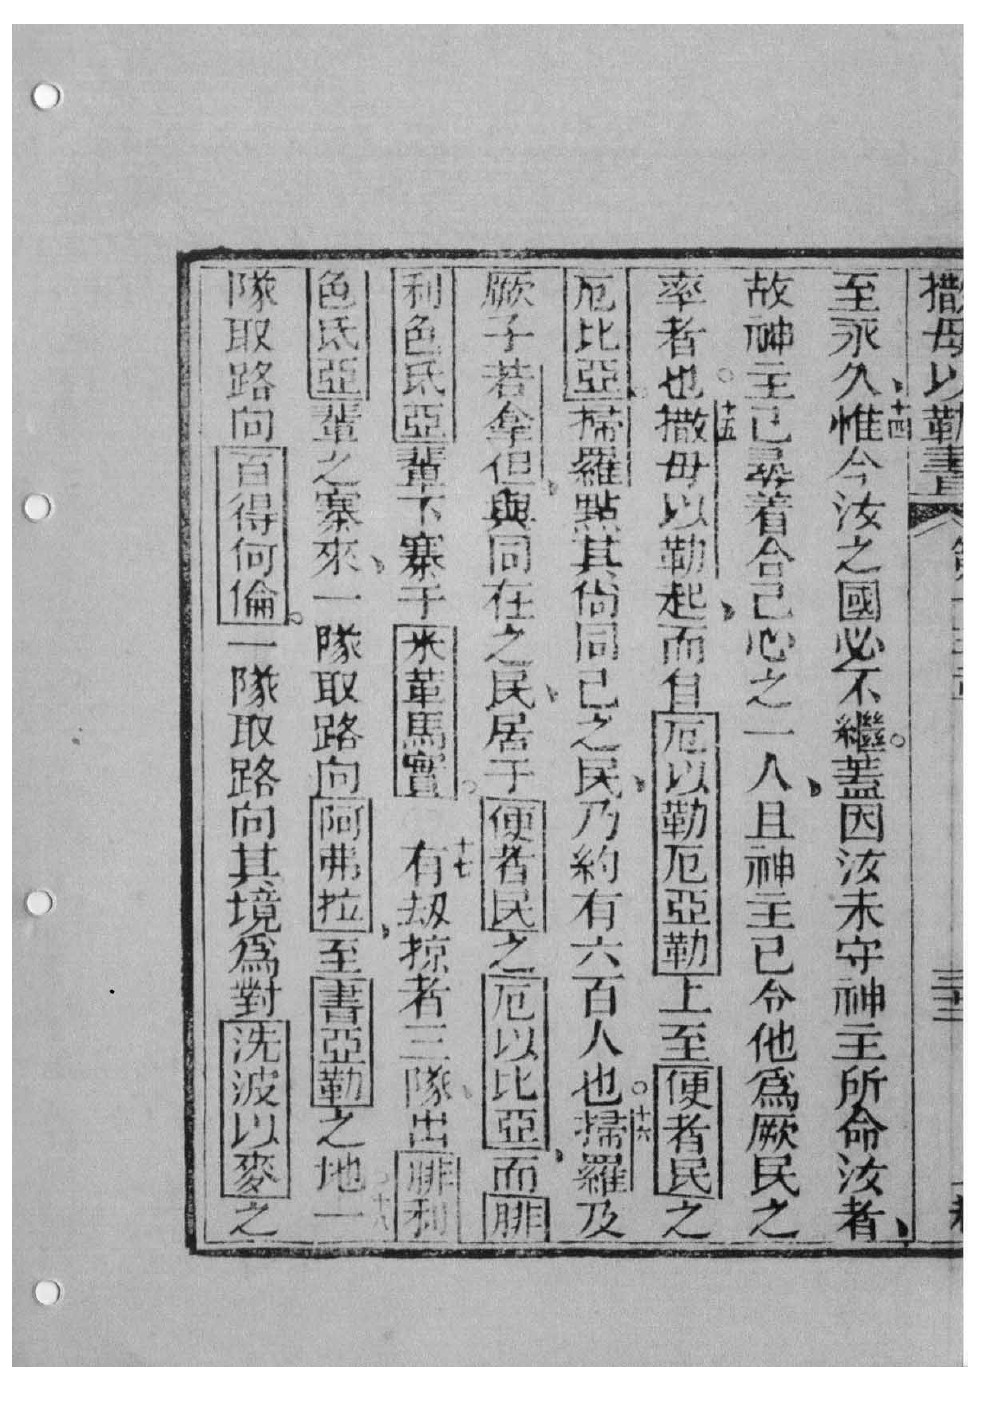 撒母以勒書上
至永久、十四惟今汝之國必不繼。蓋因汝未守神主所命汝者、
故神主已尋着合己心之一人、且神主已令他爲厥民之
率者也。十五撒母以勒起、而自厄以勒厄亞勒上至便者民之
厄比亞。掃羅點其尙同己之民、乃約有六百人也。十六掃羅及
厥子若拿但、與同在之民、居于便者民之厄以比亞、而腓
利色氏亞輩下寨于米革馬實。十七有刼掠者三隊、出腓利
色氏亞輩之寨來、一隊取路向阿弗拉、至書亞勒之地。十八一
隊取路向百得何倫。一隊取路向其境爲對洗波以麥之